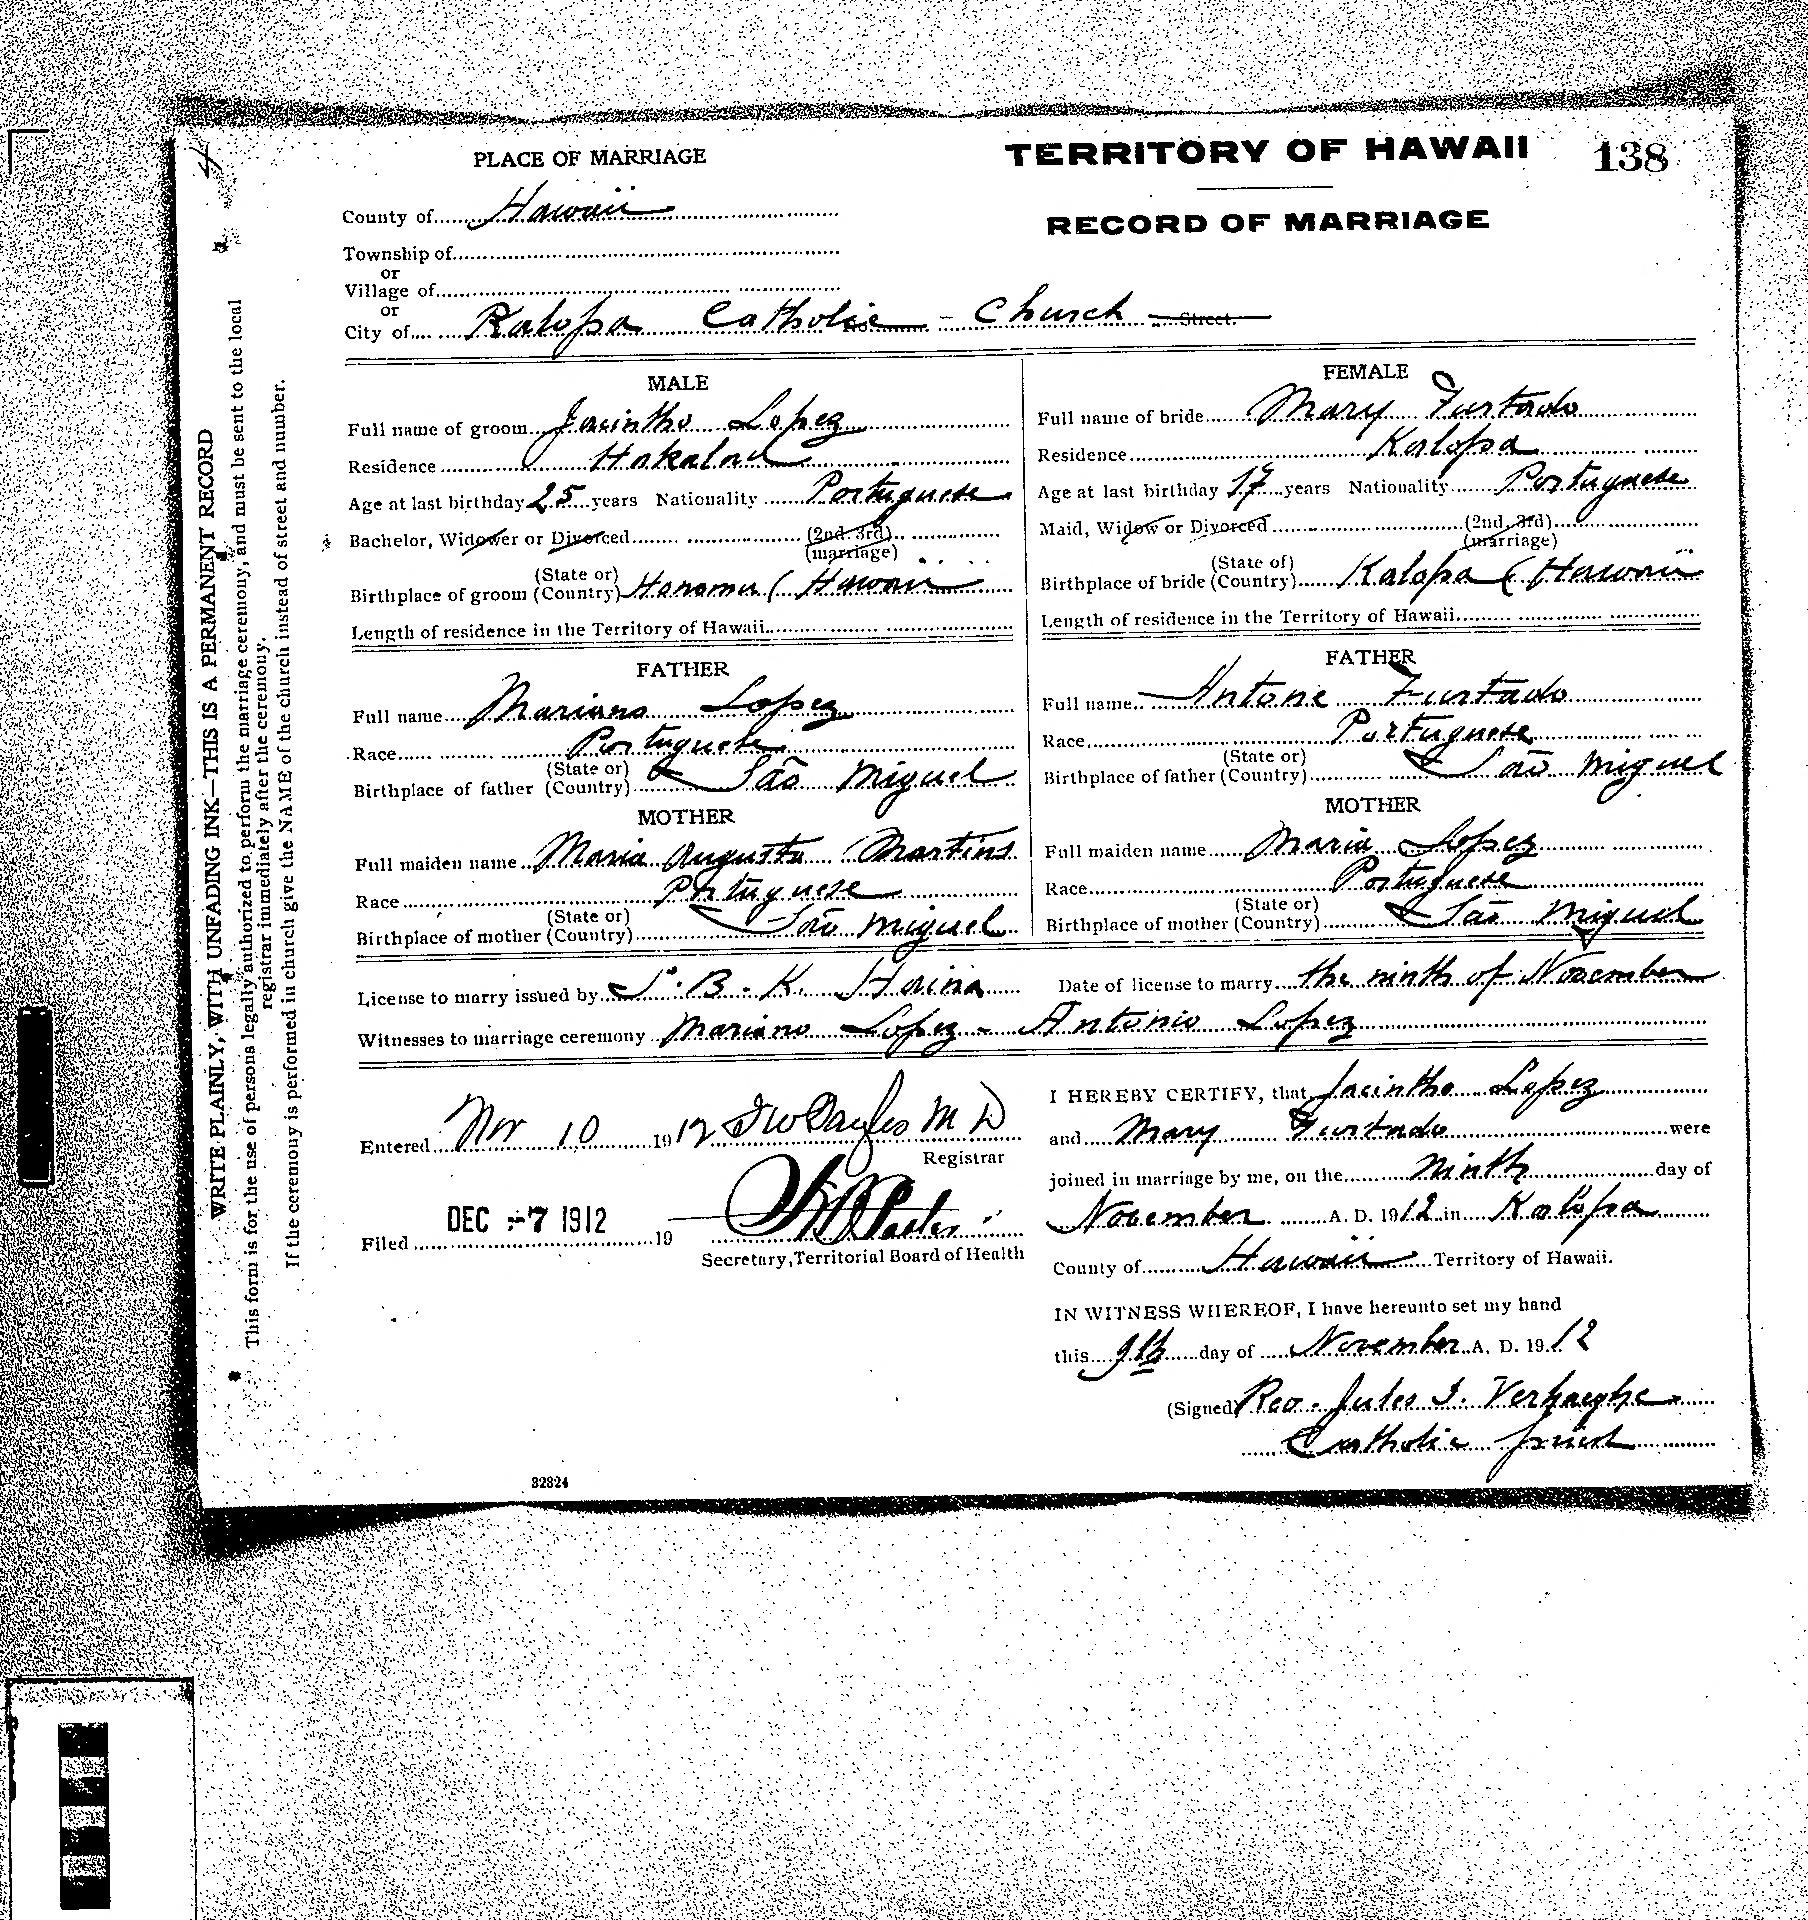 PLACE OF MARRIAGE
TERRITORY OF HAWAII 138
RECORD OF MARRIAGE
County of Hawaii
Township of
or
Village of
or
City of Kalopa Catholic - Church Street.
MALE
Full name of groom Jacintho Lopez
Residence Hakalau
Age at last birthday 25 years Nationality Portuguese
Bachelor, Widower or Divorced (2nd. 3rd) (marriage)
Birthplace of groom (State or) (Country) Honomu ( Hawaii
Length of residence in the Territory of Hawaii
FATHER
Full name Mariano Lopez
Race Portuguese
Birthplace of father (State or) (Country) São Miguel
MOTHER
Full maiden name Maria Augusta Martins
Race Portuguese
Birthplace of mother (State or) (Country) São Miguel
FEMALE
Full name of bride Mary Furtado
Residence Kalopa
Age at last birthday 17 years Nationality Portuguese
Maid, Widow or Divorced (2nd. 3rd) (marriage)
Birthplace of bride (State of) (Country) Kalopa ( Hawaii
Length of residence in the Territory of Hawaii
FATHER
Full name Antone Furtado
Race Portuguese
Birthplace of father (State or) (Country) São Miguel
MOTHER
Full maiden name Maria Lopez
Race Portuguese
Birthplace of mother (State or) (Country) São Miguel
License to marry issued by S. B. K. Haina Date of license to marry the ninth of November
Witnesses to marriage ceremony Mariano Lopez - Antonio Lopez
Entered Nov 10 1912 M D
Registrar
Filed DEC -7 1912 19
Secretary, Territorial Board of Health
I HEREBY CERTIFY, that Jacintho Lopez
and Mary Furtado were
joined in marriage by me, on the Ninth day of
November A. D. 1912 in Kalopa
County of Hawaii Territory of Hawaii.
IN WITNESS WHEREOF, I have hereunto set my hand
this 9th day of November A. D. 1912
(Signed) Rev. Jules I. Verhaeghe
Catholic priest
32824
WRITE PLAINLY, WITH UNFADING INK—THIS IS A PERMANENT RECORD
This form is for the use of persons legally authorized to perform the marriage ceremony, and must be sent to the local
registrar immediately after the ceremony.
If the ceremony is performed in church give the NAME of the church instead of street and number.